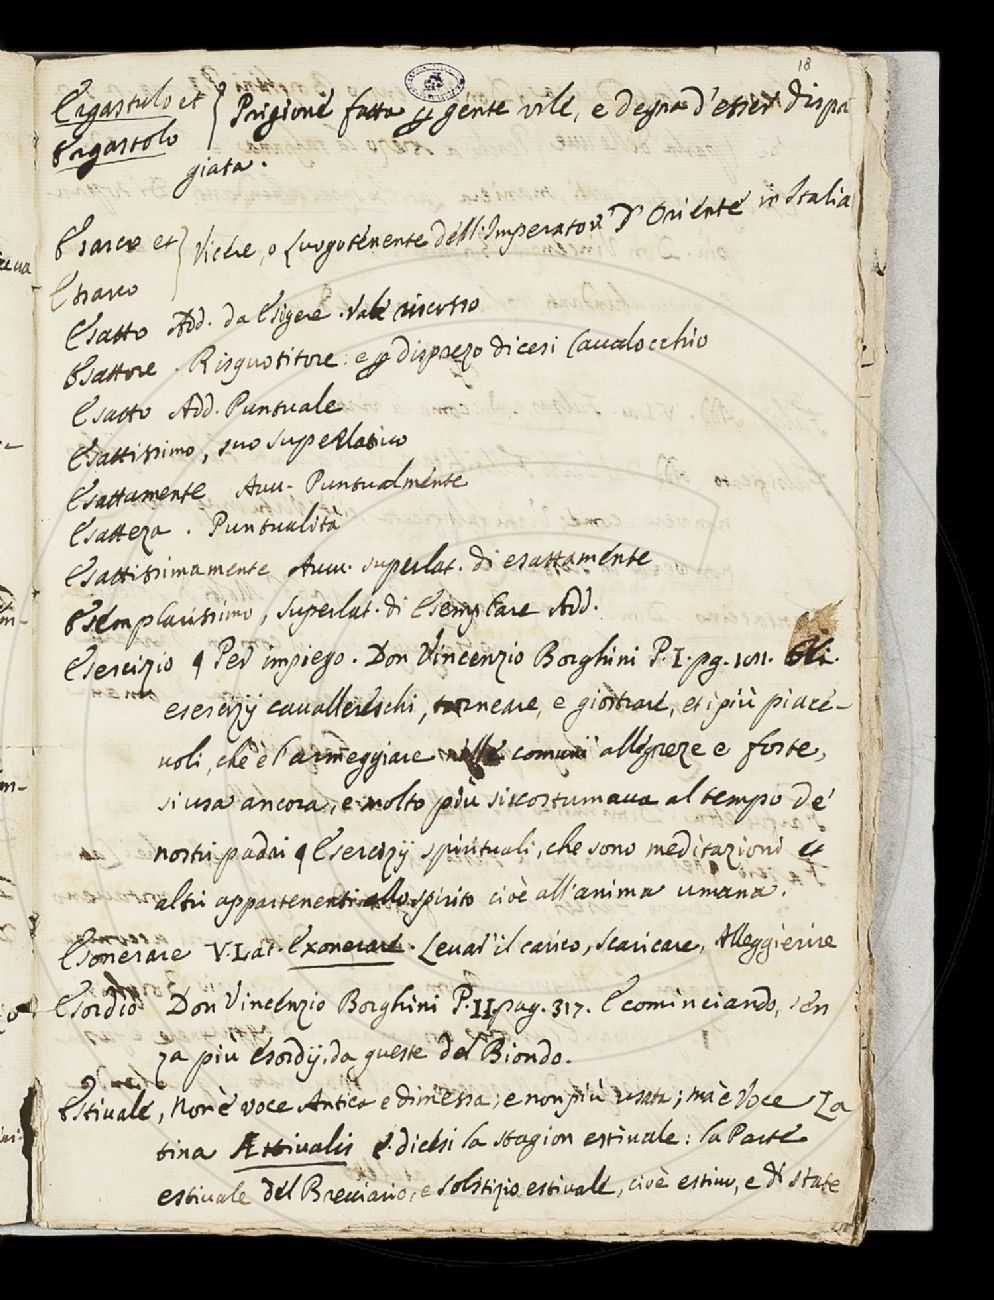 18
Ergastulo et } Prigione fatta p gente vile, e degna d'esser dispre
Ergastolo
giata.
Esarco et } Vicere, o Luogotenente dell'Imperatore d'Oriente in Italia
Esarco
Esatto Add. da Esigere. Vale riscosso
Esattore. Risquotitore: e p disprezo dicesi Cavalocchio
Esatto Add. Puntuale
Esattissimo, suo superlativo
Esattamente Avv. Puntualmente
Esatteza. Puntualità
Esattissimamente Avv. superlat. di esattamente
Esemplarissimo, superlat. di Esemplare Add.
Esercizio ¶ Per impiego. Don Vincenzio Borghini P. I. pg. 101. Gli
esercizij cavallereschi, torneare, e giostrare, et i più piace-
voli, che è l'armeggiare nelle comuni allegreze e feste,
si usa ancora, e molto più si costumava al tempo de'
nostri padri ¶ Esercizij spirituali, che sono meditazioni et
altri appartenenti allo spirito cioè all'anima umana.
Esonerare V. Lat. Exonerare. Levar' il carico, scaricare, Alleggierire
Esordio Don Vincenzio Borghini P. II pag. 317. E cominciando, sen
za più esordij, da queste del Biondo.
Estivale, Non è voce Antica e dimessa, e non più usata; ma è Voce La
tina Æstivalis e dicesi la stagion estivale: la Parte
estivale del Breviario, e solstizio estivale, cioè estivo, e di state